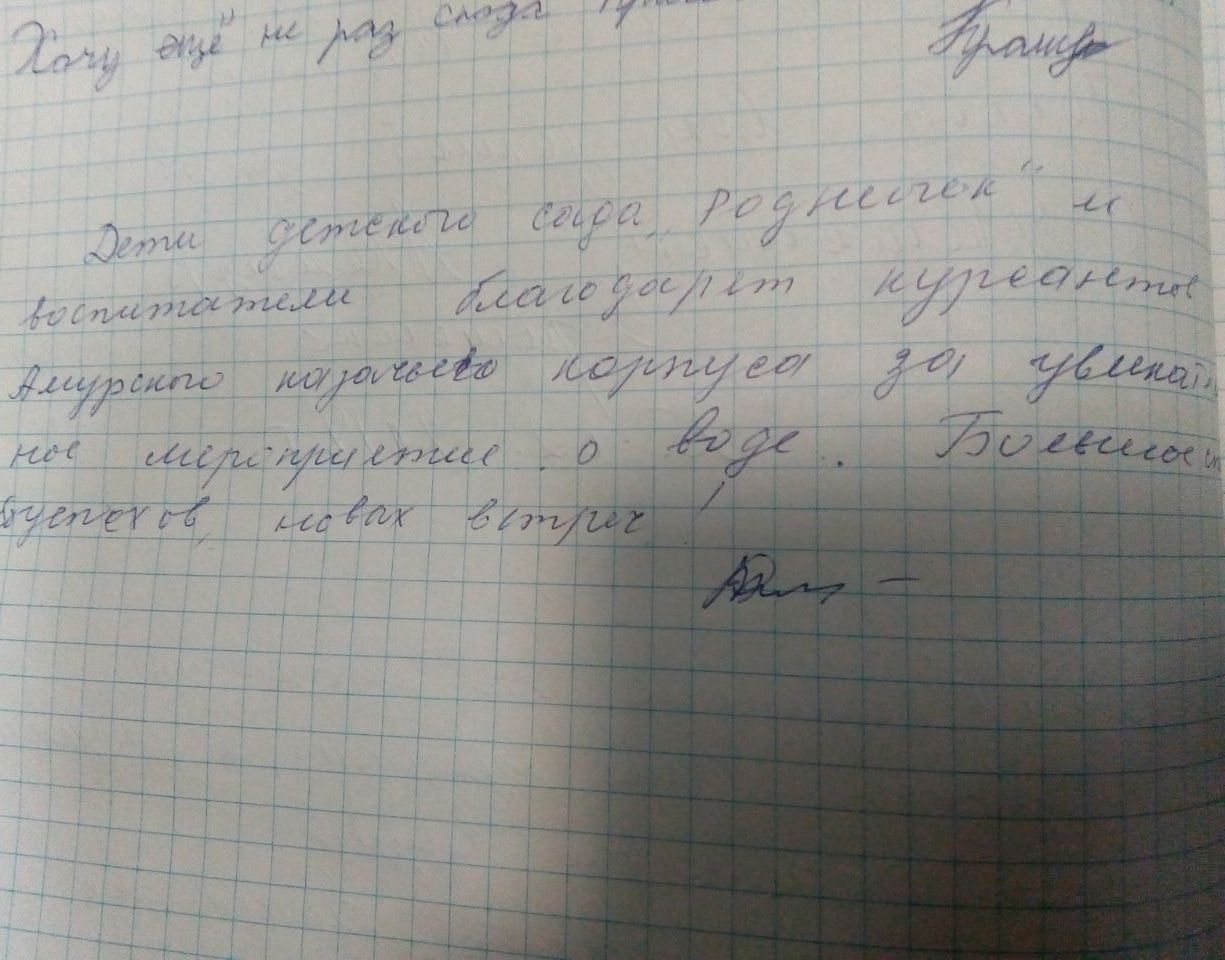 Хочу ещё не раз сюда
Дети детского сада „Родничок" и
воспитатели благодарят курсантов
Амурского казачьего корпуса за увлекат
ное мероприятие о воде. Больших
успехов, новых встреч!